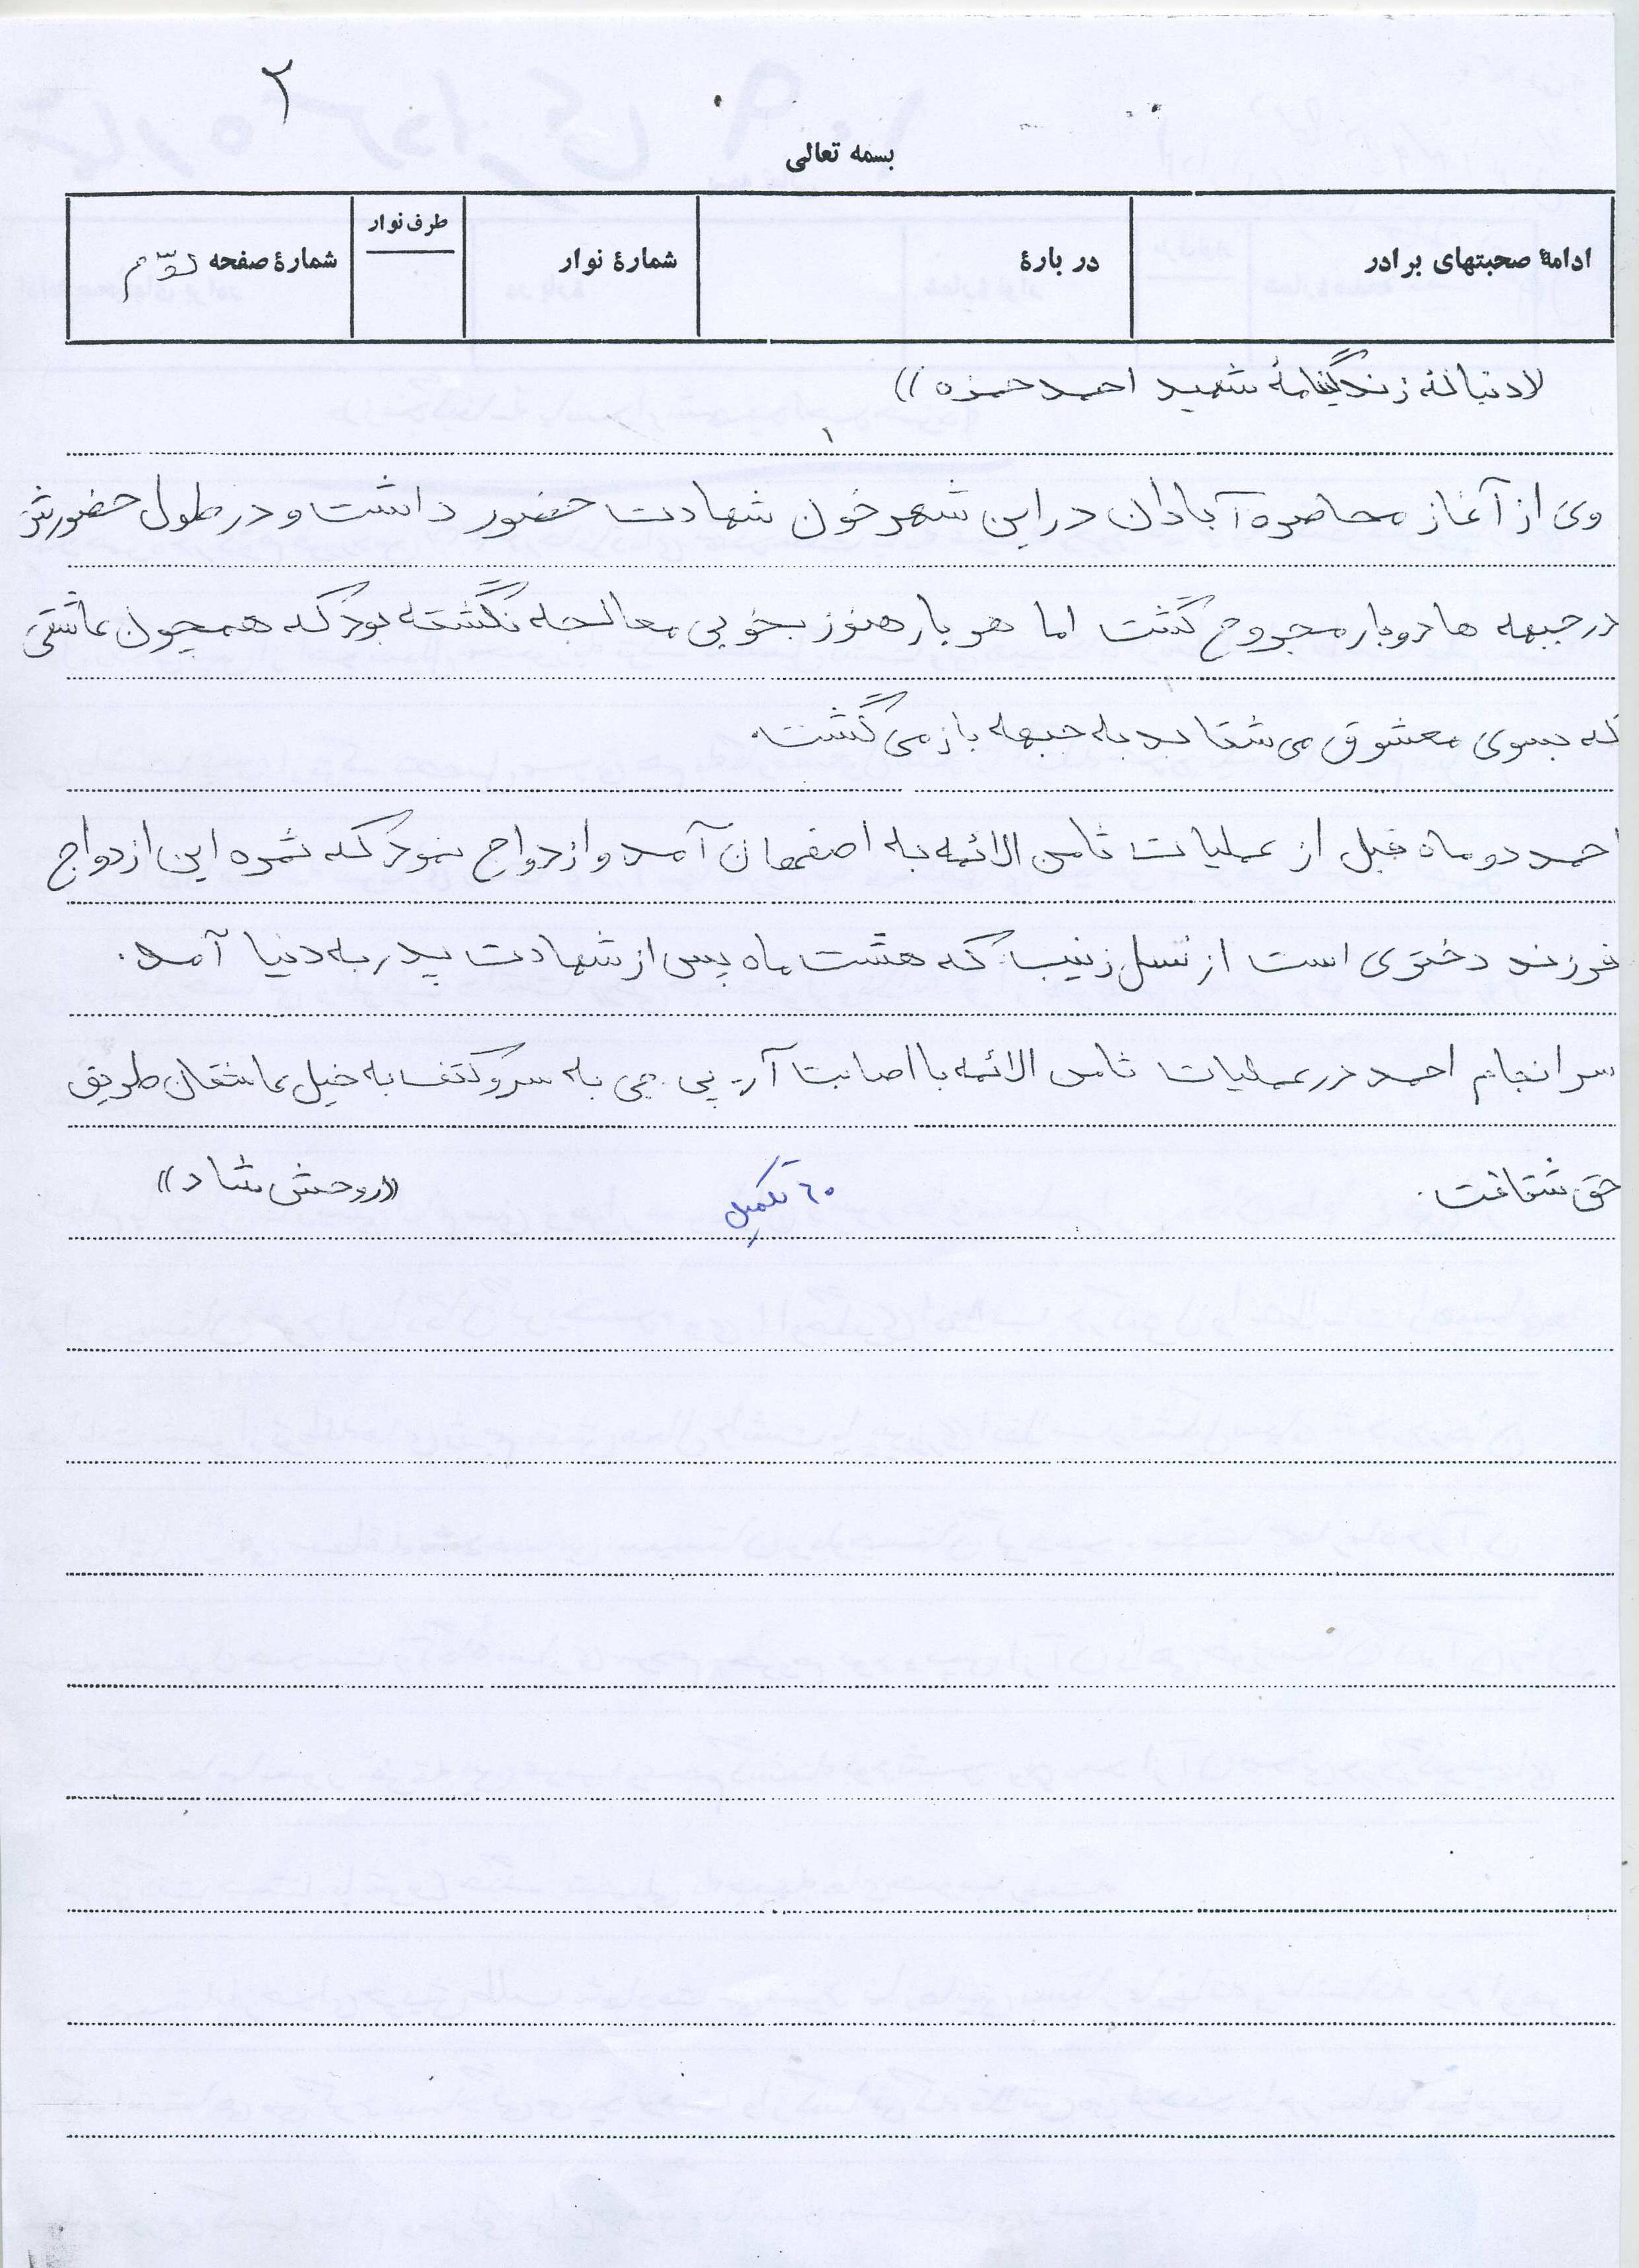 ۲
بسمه تعالی
ادامهٔ صحبتهای برادر
در بارهٔ
شمارهٔ نوار
طرف نوار
شمارهٔ صفحه دوّم
«دنبالهٔ زندگینامهٔ شهید احمد حمزه»
وی از آغاز محاصره آبادان در این شهر خون شهادت حضور داشت و در طول حضورش
در جبهه ها دوبار مجروح گشت اما هر بار هنوز بخوبی معالجه نگشته بود که همچون عاشقی
که بسوی معشوق می شتابد به جبهه باز می گشت.
احمد دو ماه قبل از عملیات ثامن الائمه به اصفهان آمد و ازدواج نمود که ثمره این ازدواج
فرزند دختری است از نسل زینب که هشت ماه پس از شهادت پدر به دنیا آمد.
سرانجام احمد در عملیات ثامن الائمه با اصابت آر پی جی به سر و کتف به خیل عاشقان طریق
حق شتافت.
۶۰ تکمیل
«روحش شاد»